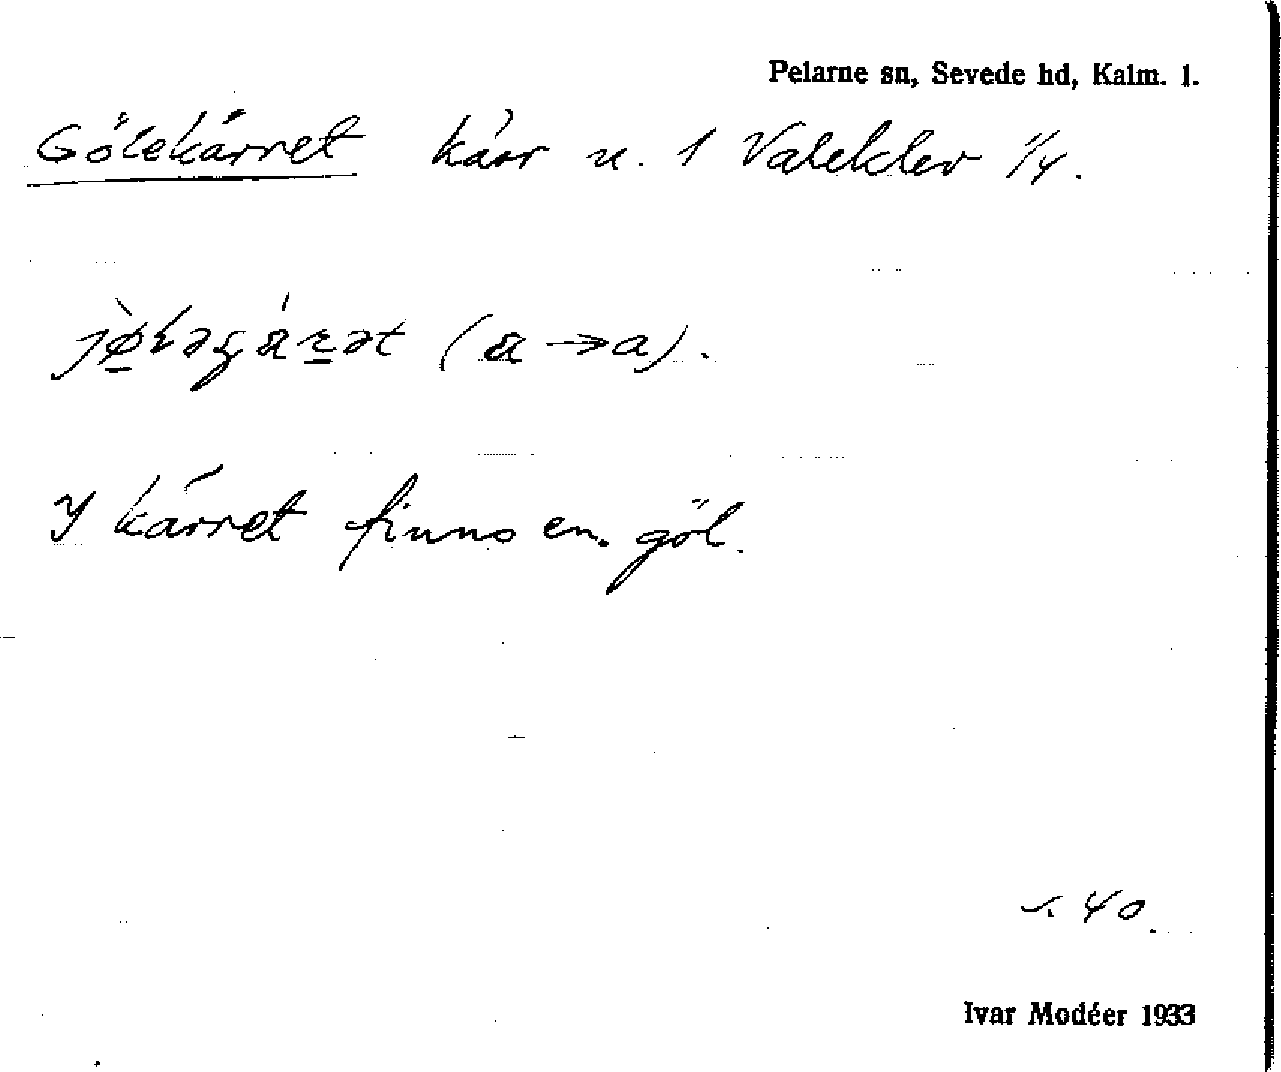 Pelarne sn, Sevede hd, Kalm. l.
Gölekärret kärr n. 1 Valeklev 1/4.
I kärret finns en göl.
s. 40.
Ivar Modéer 1933